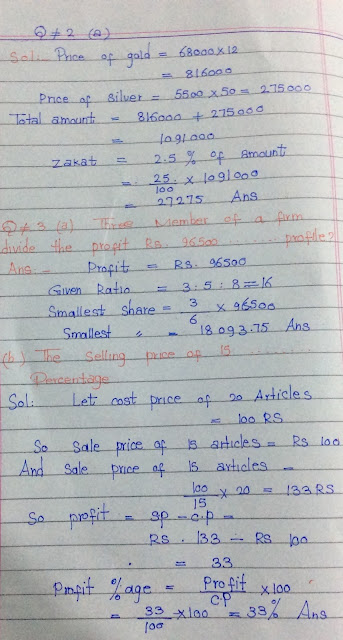 Q # 2 (a)
Sol:- Price of gold = 68000 x 12
= 816000
Price of Silver = 5500 x 50 = 275000
Total amount = 816000 + 275000
= 1091000
Zakat = 2.5 % of amount
= 25. / 100 x 1091000
= 27275 Ans
Q # 3 (a) Three Member of a firm
divide the profit Rs. 96500 ......... profile?
Ans - Profit = RS. 96500
Given Ratio = 3 : 5 : 8 = 16
Smallest Share = 3 / 6 x 96500
Smallest " = 18093.75 Ans
(b) The Selling price of 15 ..........
Percentage
Sol: Let cost price of 20 Articles
= 100 RS
So Sale price of 15 articles = Rs 100
And Sale price of 15 articles =
100 / 15 x 20 = 133 RS
So profit = SP - c.p =
RS. 133 - RS 100
= 33
Profit %age = Profit / C.P x 100
= 33 / 100 x 100 = 33% Ans